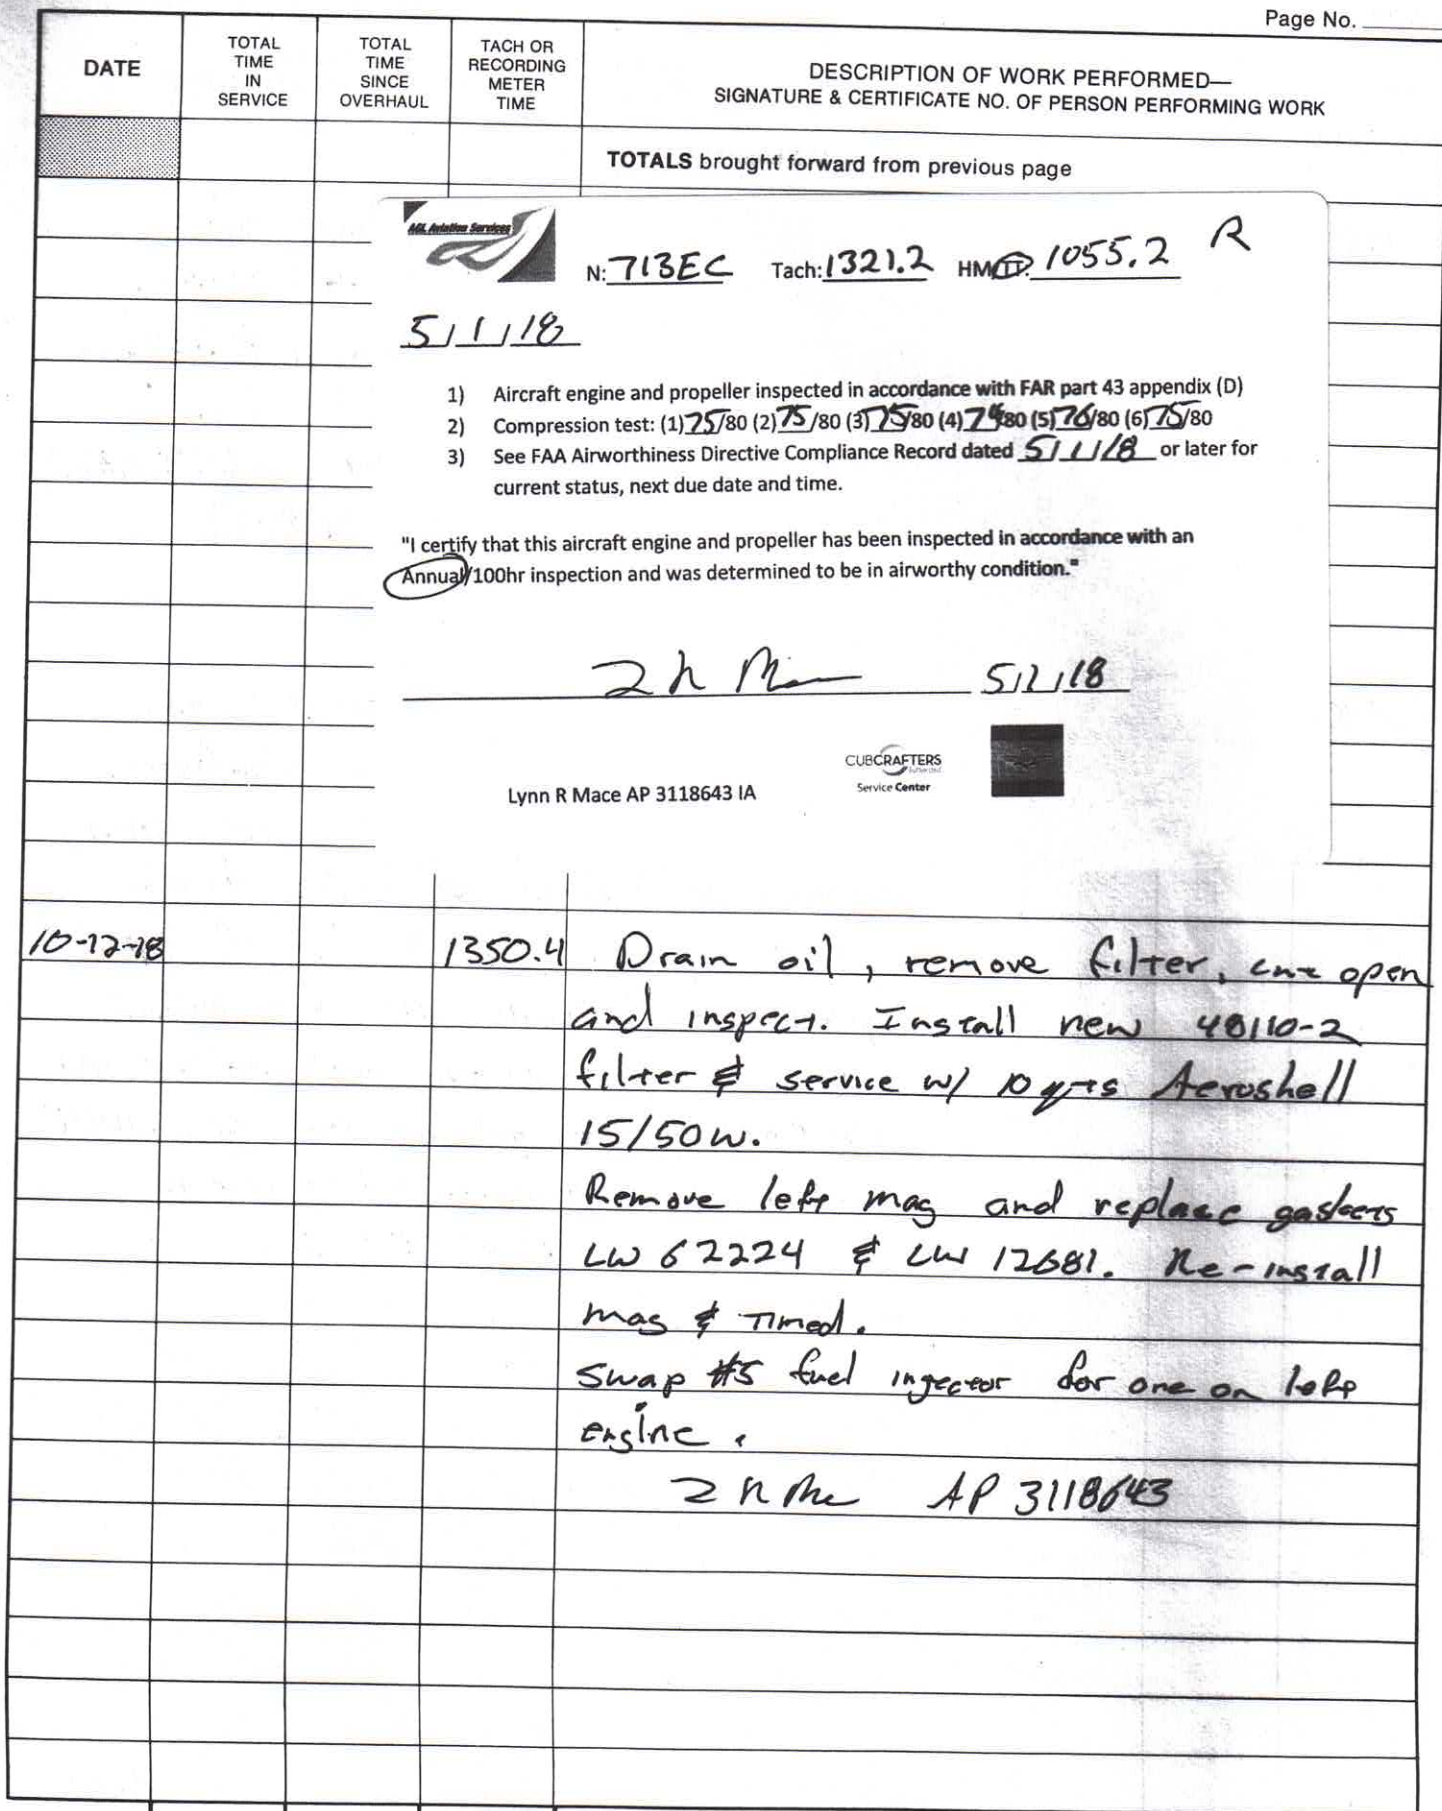 Page No.
DATE
TOTAL TIME IN SERVICE
TOTAL TIME SINCE OVERHAUL
TACH OR RECORDING METER TIME
DESCRIPTION OF WORK PERFORMED—
SIGNATURE & CERTIFICATE NO. OF PERSON PERFORMING WORK
TOTALS brought forward from previous page
Aviation Services
N: 713EC Tach: 1321.2 HM/TT: 1055.2 R
5/1/18
1) Aircraft engine and propeller inspected in accordance with FAR part 43 appendix (D)
2) Compression test: (1) 75/80 (2) 75/80 (3) 75/80 (4) /80 (5) 76/80 (6) 75/80
3) See FAA Airworthiness Directive Compliance Record dated 5/1/18 or later for
current status, next due date and time.
"I certify that this aircraft engine and propeller has been inspected in accordance with an
Annual/100hr inspection and was determined to be in airworthy condition."
5/1/18
CUBCRAFTERS
Service Center
Lynn R Mace AP 3118643 IA
10-12-18 1350.4 Drain oil, remove filter, cut open
and inspect. Install new 48110-2
filter & service w/ 10 qts Aeroshell
15/50w.
Remove left mag and replace gaskets
LW 62224 & LW 12681. Re-install
mag & timed.
Swap #5 fuel injector for one on left
engine.
AP 3118643